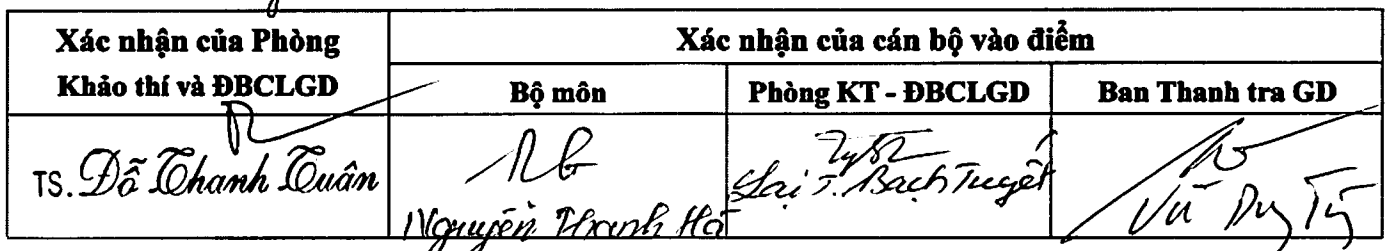 Xác nhận của Phòng
Khảo thí và ĐBCLGD
Xác nhận của cán bộ vào điểm
Bộ môn
Phòng KT - ĐBCLGD
Ban Thanh tra GD
TS. Đỗ Thanh Tuân
Nguyễn Thanh Hà
Lại T. Bạch Tuyết
Vũ Duy